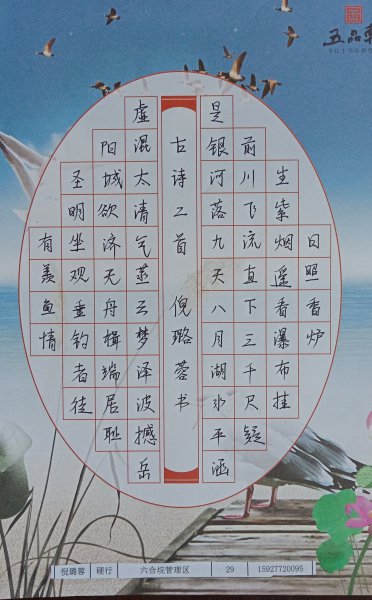 五品
日照香炉
生紫烟遥看瀑布挂
前川飞流直下三千尺疑
是银河落九天八月湖水平涵
古诗二首 倪璐蓉书
虚混太清气蒸云梦泽波撼岳
阳城欲济无舟楫端居耻
圣明坐观垂钓者徒
有羡鱼情
倪璐蓉 硬行 六合垸管理区 29 15927720095